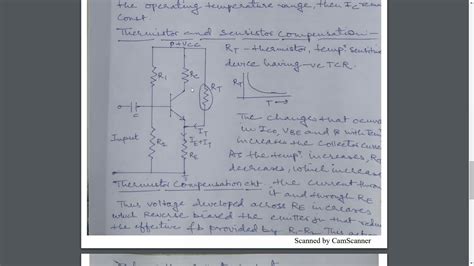 the operating temperature range, then Ic rema
const
Thermistor and Sensistor Compensation -
P+VCC
R1
RC
RT
RT - thermistor, tempr sensitive
device having -ve TCR.
RT
T→
C
Input
R2
IT
IE+IT
RE
The changes that occur
in ICO, VBE and β with Tem
increase the Collector curre
As the tempr increases, RT
decreases, which increase
Thermistor Compensation ckt
the current throu
it and through RE
Thus voltage developed across RE increases
which reverse biased the emitter jn that redu
the effective f provided by R1-R2. This act
Scanned by CamScanner